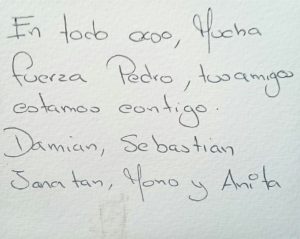 En todo caso, Mucha
fuerza Pedro, tus amigos
estamos contigo.
Damian, Sebastian
Janatan, Mono y Anita